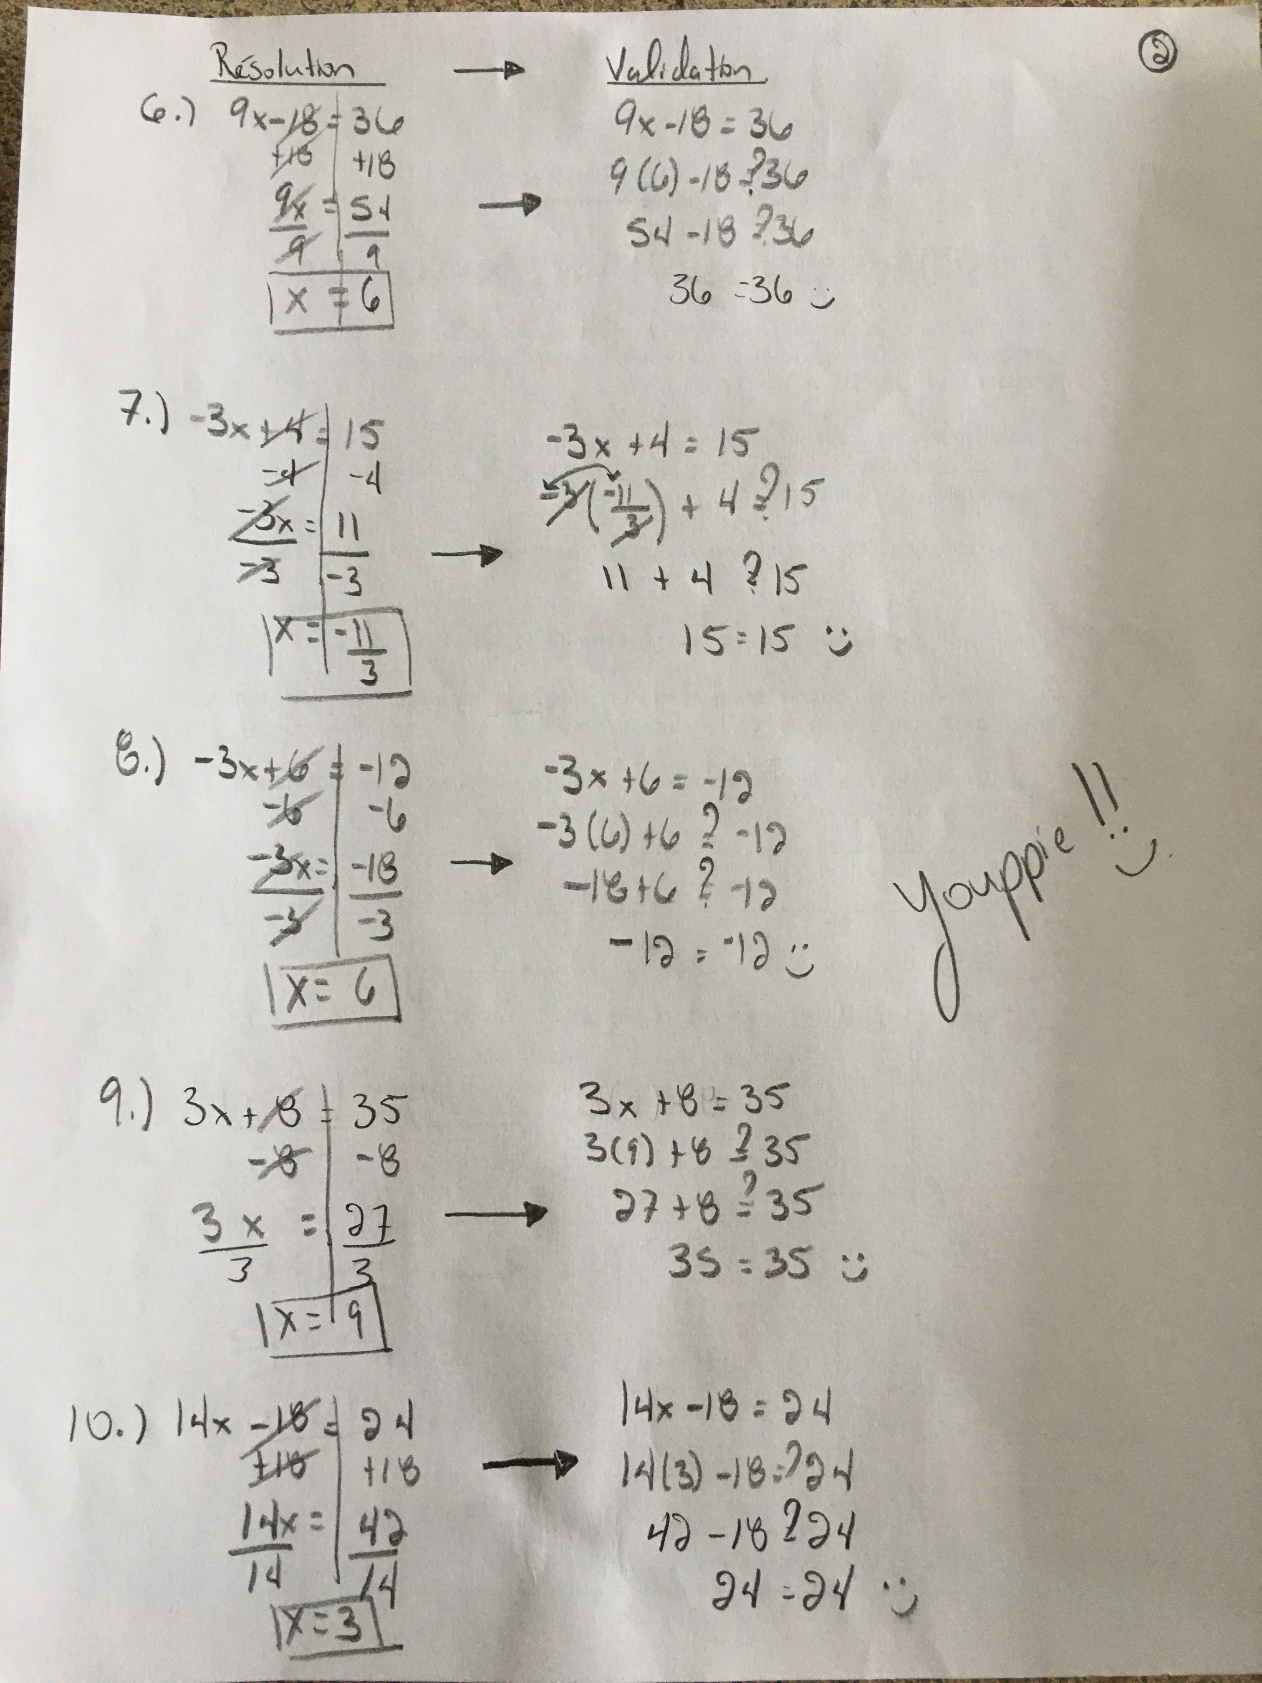 ②
Résolution → Validation
6.) 9x-18 = 36
+18 +18
9x = 54
9 9
x = 6
→
9x-18 = 36
9(6)-18 ?= 36
54-18 ? 36
36 = 36 :)
7.) -3x+4 = 15
-4 -4
-3x = 11
-3 -3
x = -11
3
→
-3x+4 = 15
-3(-11/3) + 4 ? 15
11 + 4 ? 15
15 = 15 :)
8.) -3x+6 = -12
-6 -6
-3x = -18
-3 -3
x = 6
→
-3x+6 = -12
-3(6)+6 ? -12
-18+6 ? -12
-12 = -12 :)
Youppie !! :)
9.) 3x+8 = 35
-8 -8
3x = 27
3 3
x = 9
→
3x+8 = 35
3(9)+8 ?= 35
27+8 ?= 35
35 = 35 :)
10.) 14x-18 = 24
+18 +18
14x = 42
14 14
x = 3
→
14x-18 = 24
14(3)-18 =? 24
42-18 ? 24
24 = 24 :)